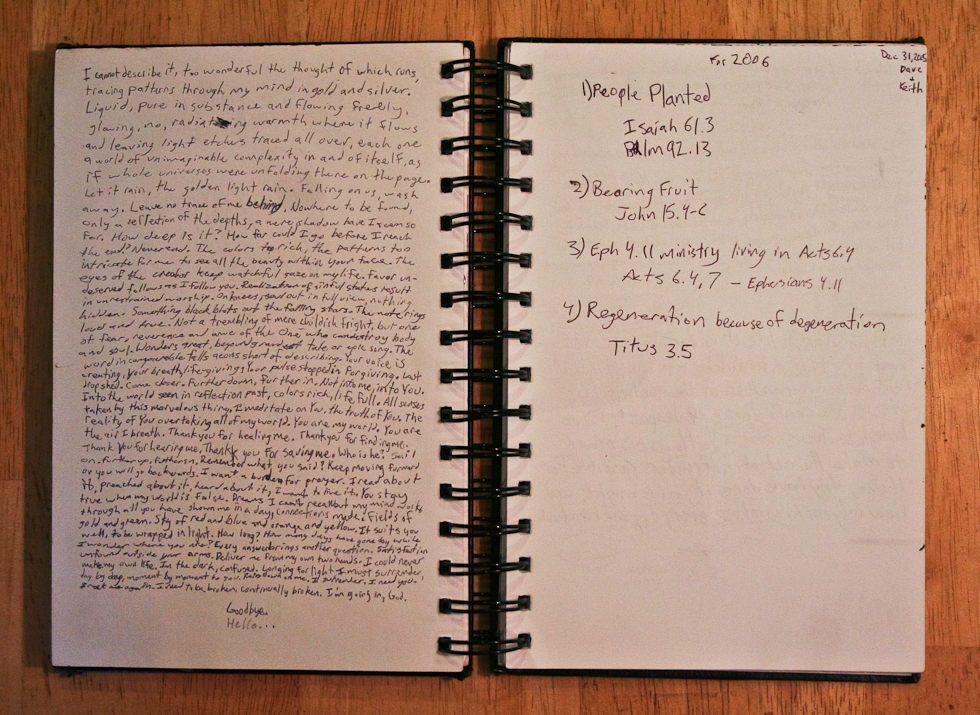 I cannot describe it, too wonderful the thought of which runs,
tracing patterns through my mind in gold and silver.
Liquid, pure in substance and flowing freely,
glowing, no, radiating warmth where it flows
and leaving light etches traced all over, each one
a world of unimaginable complexity in and of itself, as
if whole universes were unfolding there on the page.
Let it rain, the golden light rain. Falling on us, wash
away. Leave no trace of me behind. Nowhere to be found,
only a reflection of the depths, a mere shadow have I seen so
far. How deep is it? How far could I go before I reach
the end? Never end. The colors too rich, the patterns too
intricate for me to see all the beauty within your face. The
eyes of the creator keep watchful gaze on my life. Favor un-
deserved follows as I follow you. Realization of sinful states result
in unrestrained worship. On knees, soul out in full view, nothing
hidden. Something black blots out the falling stars. The note rings
loud and true. Not a trembling of mere childish fright, but one
of fear, reverence and awe of the One who can destroy body
and soul. Wonders great, beyond grandest tale or epic song. The
word incomparable falls aeons short of describing. Your voice is
creating, your breath life-giving; Your pulse stopped in forgiving. Last
drop shed. Come closer. Further down, further in. Not into me, into You.
Into the world seen in reflection past, colors rich, life full. All senses
taken by this marvelous thing, I meditate on You, the truth of You. The
reality of You overtaking all of my world. You are my world. You are
the air I breath. Thank you for healing me. Thank you for finding me.
Thank you for hearing me, Thank you for saving me. Who is he? Sail
on. further up, further in. Remember what you said? Keep moving forward
or you will go backwards. I want a burden for prayer. I read about
it, preached about it, heard about it, I want to live it. You stay
true when my world is false. Dreams I can't recall but my mind works
through all you have shown me in a day, connections made. Fields of
gold and green. Sky of red and blue and orange and yellow. It suits you
well, to be wrapped in light. How long? How many days have gone day while
I wonder where you are? Every answer brings another question. Satisfaction
unfound outside your arms. Deliver me from my own two hands. I could never
make my own life. In the dark, confused. Longing for light I must surrender
day by day, moment by moment to you. Rain down on me. I surrender, I need you.
Break me again. I need to be broken continually broken. I'm going in, God.
Goodbye.
Hello...
For 2006
Dec 31, 2005
Dave
+
Keith
1) People Planted
Isaiah 61.3
Psalm 92.13
2) Bearing Fruit
John 15.4-6
3) Eph 4.11 ministry living in Acts 6.4
Acts 6.4,7 - Ephesians 4.11
4) Regeneration because of degeneration
Titus 3.5